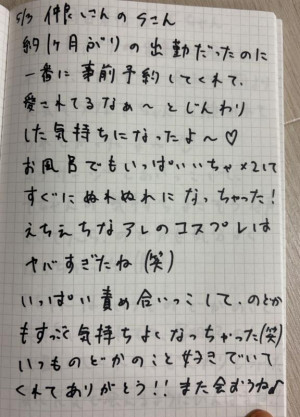 5/3 仲良しさんのSさん
約1ヶ月ぶりの出勤だったのに
一番に事前予約してくれて、
愛されてるなぁ〜とじんわり
した気持ちになったよ〜♡
お風呂でもいっぱいいちゃ×2して
すぐにぬれぬれになっちゃった!
えちえちなアレのコスプレは
ヤバすぎたね(笑)
いっぱい責め合いっこして、のどか
もすっごく気持ちよくなっちゃった(笑)
いつものどかのこと好きでいて
くれてありがとう!!また会おうね♪